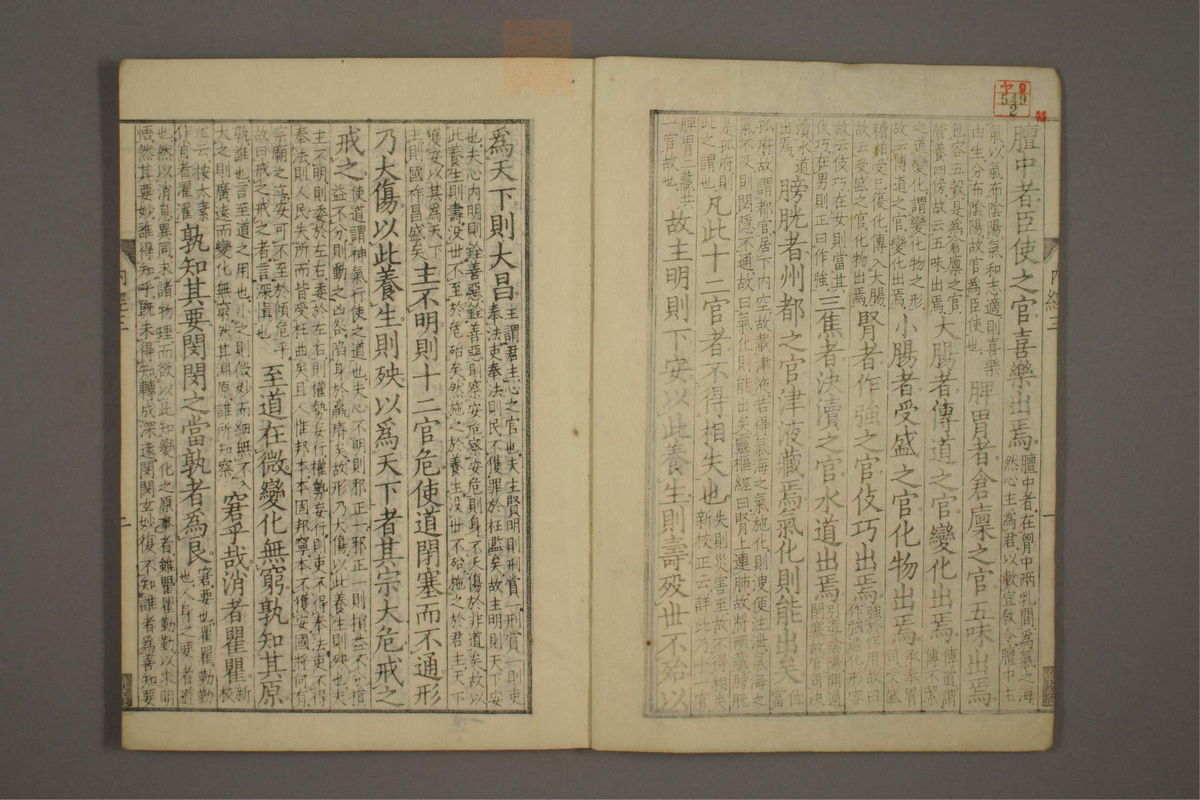 ヤ9
549
2
膻中者臣使之官喜樂出焉膻中者在胷中兩乳間為氣之海然心主為君以敷宣教令膻中主
氣以氣布陰陽氣和志適則喜樂由生分布陰陽故官為臣使也脾胃者倉廩之官五味出焉
包容五穀是為倉廩之官營養四傍故云五味出焉大腸者傳道之官變化出焉傳道謂傳不潔
之道變化謂變化物之形故云傳道之官變化出焉小腸者受盛之官化物出焉承奉胃司受盛
糟粕受已復化傳入大腸故云受盛之官化物出焉腎者作強之官伎巧出焉強於作用故曰作強造化形容
故云伎巧在女則當其伎巧在男則正曰作強三焦者決瀆之官水道出焉引導陰陽開通閉塞故官司決
瀆水道出焉膀胱者州都之官津液藏焉氣化則能出矣位當
孤府故謂都官居下內空故藏津液若得氣海之氣施化則溲便注泄氣海之氣不及則閟隱不通故曰氣化則能出矣靈樞經曰腎上連肺故將兩藏膀胱
是孤府則此之謂也凡此十二官者不得相失也失則災害至故不得相失新校正云詳此乃十一官
脾胃二藏共一官故也故主明則下安以此養生則壽歿世不殆以
內經三
一
為天下則大昌主謂君主心之官也夫主賢明則刑賞一刑賞一則吏奉法吏奉法則民不獲罪於枉濫矣故主明則天下安
也夫心內明則銓善惡銓善惡則察安危察安危則身不夭傷於非道矣故以此養生則壽沒世不至於危殆矣然施之於養生沒世不殆施之於君主天下
獲安以其為天下主則國祚昌盛矣主不明則十二官危使道閉塞而不通形
乃大傷以此養生則殃以為天下者其宗大危戒之
戒之使道謂神氣行使之道也夫心不明則邪正一邪正一則損益不分損益不分則動之凶咎陷身於羸瘠矣故形乃大傷以此養生則殃也夫
主不明則委於左右委於左右則權勢妄行權勢妄行則吏不得奉法吏不得奉法則人民失所而皆受枉曲矣且人惟邦本本固邦寧本不獲安國將何有
宗廟之立安可不至於傾危乎故曰戒之戒之者言深慎也至道在微變化無窮孰知其原
孰誰也言至道之用也小之則微妙而細無不入大之則廣遠而變化無窮然其淵原誰所知察窘乎哉消者瞿瞿新校
正云按太素作肖者濯濯孰知其要閔閔之當孰者為良窘要也瞿瞿勤勤也人身之要者道
也然以消息異同求諸物理而欲以此知變化之原本者雖瞿瞿勤勤以求明悟然其要妙誰得知乎既未得知轉成深遠閔閔玄妙復不知誰者為善知要
內經三
二